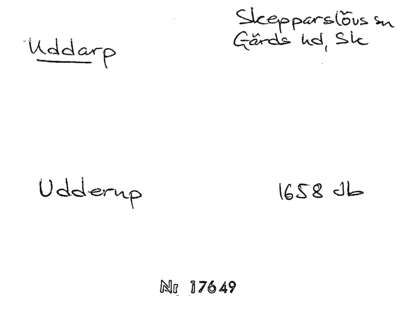 Uddarp
Skepparslövs sn
Gärds hd, Sk
Udderup
1658 Jb
Nr 17649